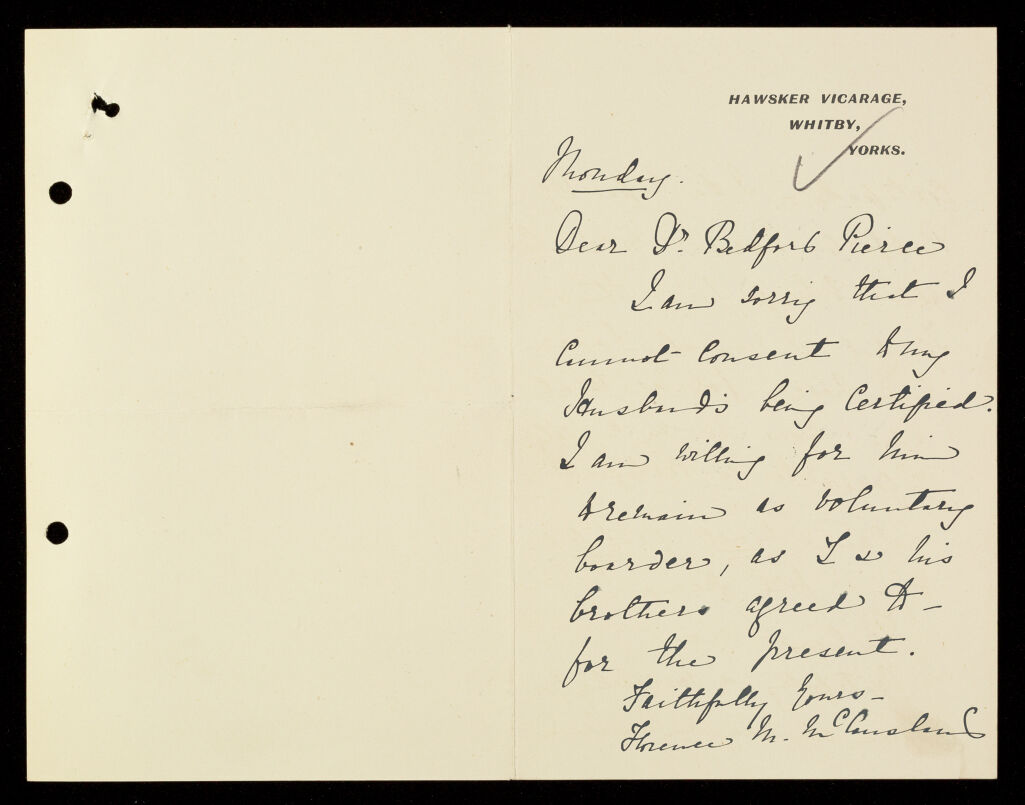 HAWSKER VICARAGE,
WHITBY,
YORKS.
Monday.
Dear Dr. Bedford Pierce
I am sorry that I
cannot consent to my
Husband's being Certified.
I am willing for him
to remain as voluntary
boarder, as I & his
brothers agreed to -
for the present.
Faithfully yours -
Florence M. McCausland